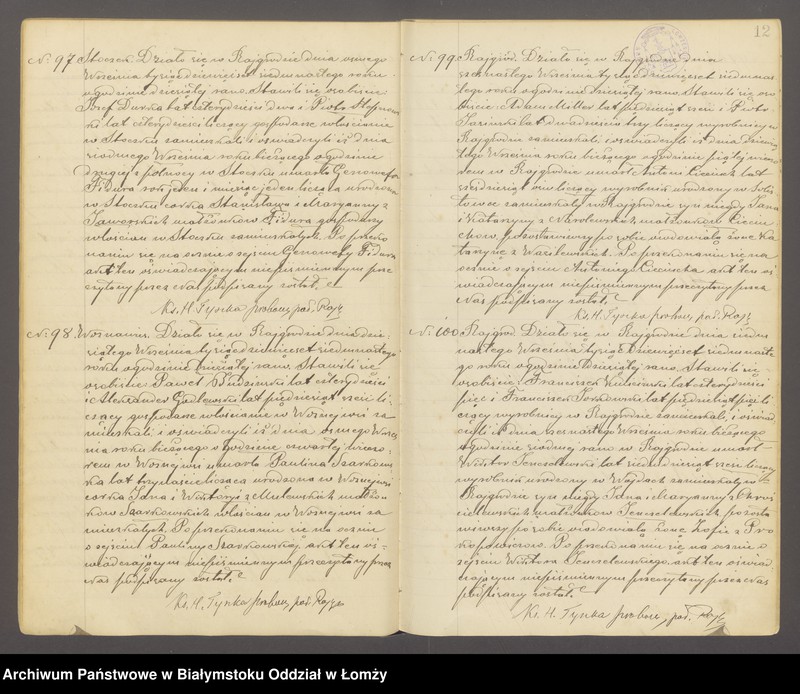 12
N: 97 Stoczek. Działo się w Rajgrodzie dnia ósmego
Września tysiąc dziewięćset siedmnastego roku
o godzinie dziesiątej rano. Stawili się osobiście
Józef Durka lat czterdzieści dwa i Piotr
ki lat czterdzieści liczący gospodarze włościanie
w Stoczku zamieszkali i oświadczyli iż dnia
siódmego Września roku bieżącego o godzinie
drugiej z północy w Stoczku umarła Genowefa
Fidura rok jeden i miesiąc jeden licząca urodzona
w Stoczku córka Stanisława i Maryanny z
Jaworskich małżonków Fidura gospodarzy
włościan w Stoczku zamieszkałych. Po przeko
naniu się naocznie o zejściu Genowefy Fidura
akt ten oświadczającym niepiśmiennym prze
czytany przez Nas podpisany został.
Ks. H. Tyszka proboszcz par. Rajg
N: 98. Woźnawieś. Działo się w Rajgrodzie dnia dzie
siątego Września tysiąc dziewięćset siedmnastego
roku o godzinie dziesiątej rano. Stawili się
osobiście Paweł Budziński lat czterdzieści
i Aleksander Godlewski lat pięćdziesiąt sześć li
czący gospodarze włościanie w Woźnejwsi za
mieszkali i oświadczyli iż dnia ósmego Wrześ
nia roku bieżącego o godzinie czwartej wieczo
rem w Woźnejwsi umarła Paulina Szarkows
ka lat trzynaście licząca urodzona w Woźnejwsi
córka Jana i Wiktoryi z małżon
ków Szarkowskich włościan w Woźnejwsi za
mieszkałych. Po przekonaniu się naocznie
o zejściu Pauliny Szarkowskiej, akt ten oś-
wiadczającym niepiśmiennym przeczytany przez
Nas podpisany został.
Ks. H. Tyszka proboszcz par. Rajg
N: 99 Rajgród. Działo się w Rajgrodzie dnia
szesnastego Września tysiąc dziewięćset siedmnas
tego roku o godzinie dziesiątej rano. Stawili się oso
biście Adam Miller lat pięćdziesiąt sześć i Piotr
lat dwadzieścia trzy liczący wyrobnicy w
Rajgrodzie zamieszkali i oświadczyli iż dnia
tego Września roku bieżącego o godzinie piątej wieczo
rem w Rajgrodzie umarł Antoni Cieciuch lat
sześćdziesiąt liczący wyrobnik urodzony w
zamieszkały w Rajgrodzie syn niegdy Jana
i Katarzyny z małżonków Cieciu
chów, pozostawiwszy po sobie owdowiałą żonę Ka
tarzynę z Wasilewskich. Po przekonaniu się na
ocznie o zejściu Antoniego Cieciucha akt ten oś
wiadczającym niepiśmiennym przeczytany przez
Nas podpisany został.
Ks. H. Tyszka proboszcz par. Rajg
N: 100 Rajgród. Działo się w Rajgrodzie dnia siedm
nastego Września tysiąc dziewięćset siedmnaste
go roku o godzinie dziesiątej rano. Stawili się
osobiście Franciszek lat czterdzieści
pięć i Franciszek lat pięćdziesiąt pięć li
czący wyrobnicy w Rajgrodzie zamieszkali, i oświad
czyli iż dnia szesnastego Września roku bieżącego
o godzinie siódmej rano w Rajgrodzie umarł
Wiktor lat siedmdziesiąt sześć liczący
wyrobnik urodzony w Wojdach zamieszkały w
Rajgrodzie syn niegdy Jana i Maryanny z Chroś
cielewskich małżonków pozosta
wiwszy po sobie owdowiałą żonę Zofię z Pro
kopowiczów. Po przekonaniu się naocznie o
zejściu Wiktora akt ten oświad
czającym niepiśmiennym przeczytany przez Nas
podpisany został.
Ks. H. Tyszka proboszcz, par. Rajg
Archiwum Państwowe w Białymstoku Oddział w Łomży